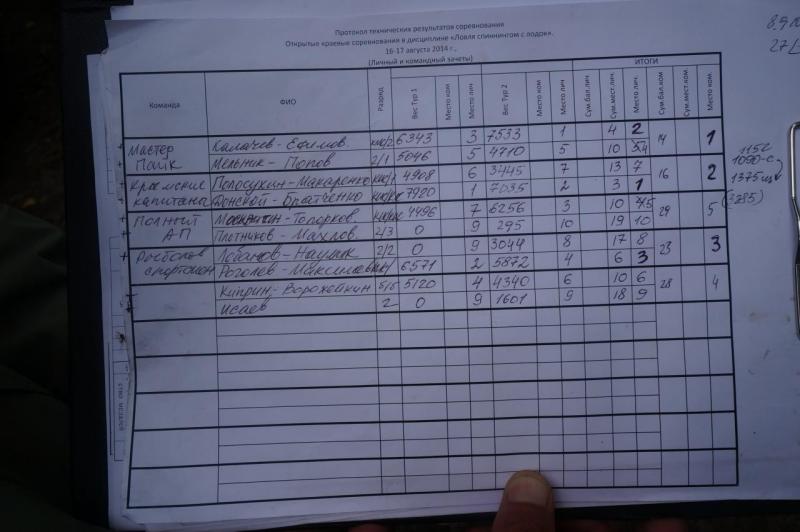 Протокол технических результатов соревнования
Открытые краевые соревнования в дисциплине «Ловля спиннингом с лодок».
16-17 августа 2014 г.,
(Личный и командный зачеты)
Команда ФИО Разряд Вес Тур 1 Место ком Место лич Вес Тур 2 Место ком Место лич ИТОГИ Сум.бал.лич Сум.мест.лич. Место лич. Сум.бал.ком Сум.мест.ком Место ком.
Мастер Калачев - Ефимов 6343 3 7533 1 4 2 14 1
Пайк Мельник - Попов 2/1 5046 5 4710 5 10
Крымские Полосухин - Макаренко 4908 6 3445 7 13 7 16 2
капитана Донской - 7920 1 7035 2 3 1
Полный - Топорков 4496 7 6256 3 10 29 5
А-П Плотников - Махлов 2/3 0 9 295 10 19 10
Рыболов Лобанов - Наумик 2/2 0 9 3044 8 17 8 23 3
спортсмен Роголев - 6571 2 5872 4 6 3
Киприн - Ворожейкин б/б 5120 4 4340 6 10 6 28 4
Исаев 2 0 9 1601 9 18 9